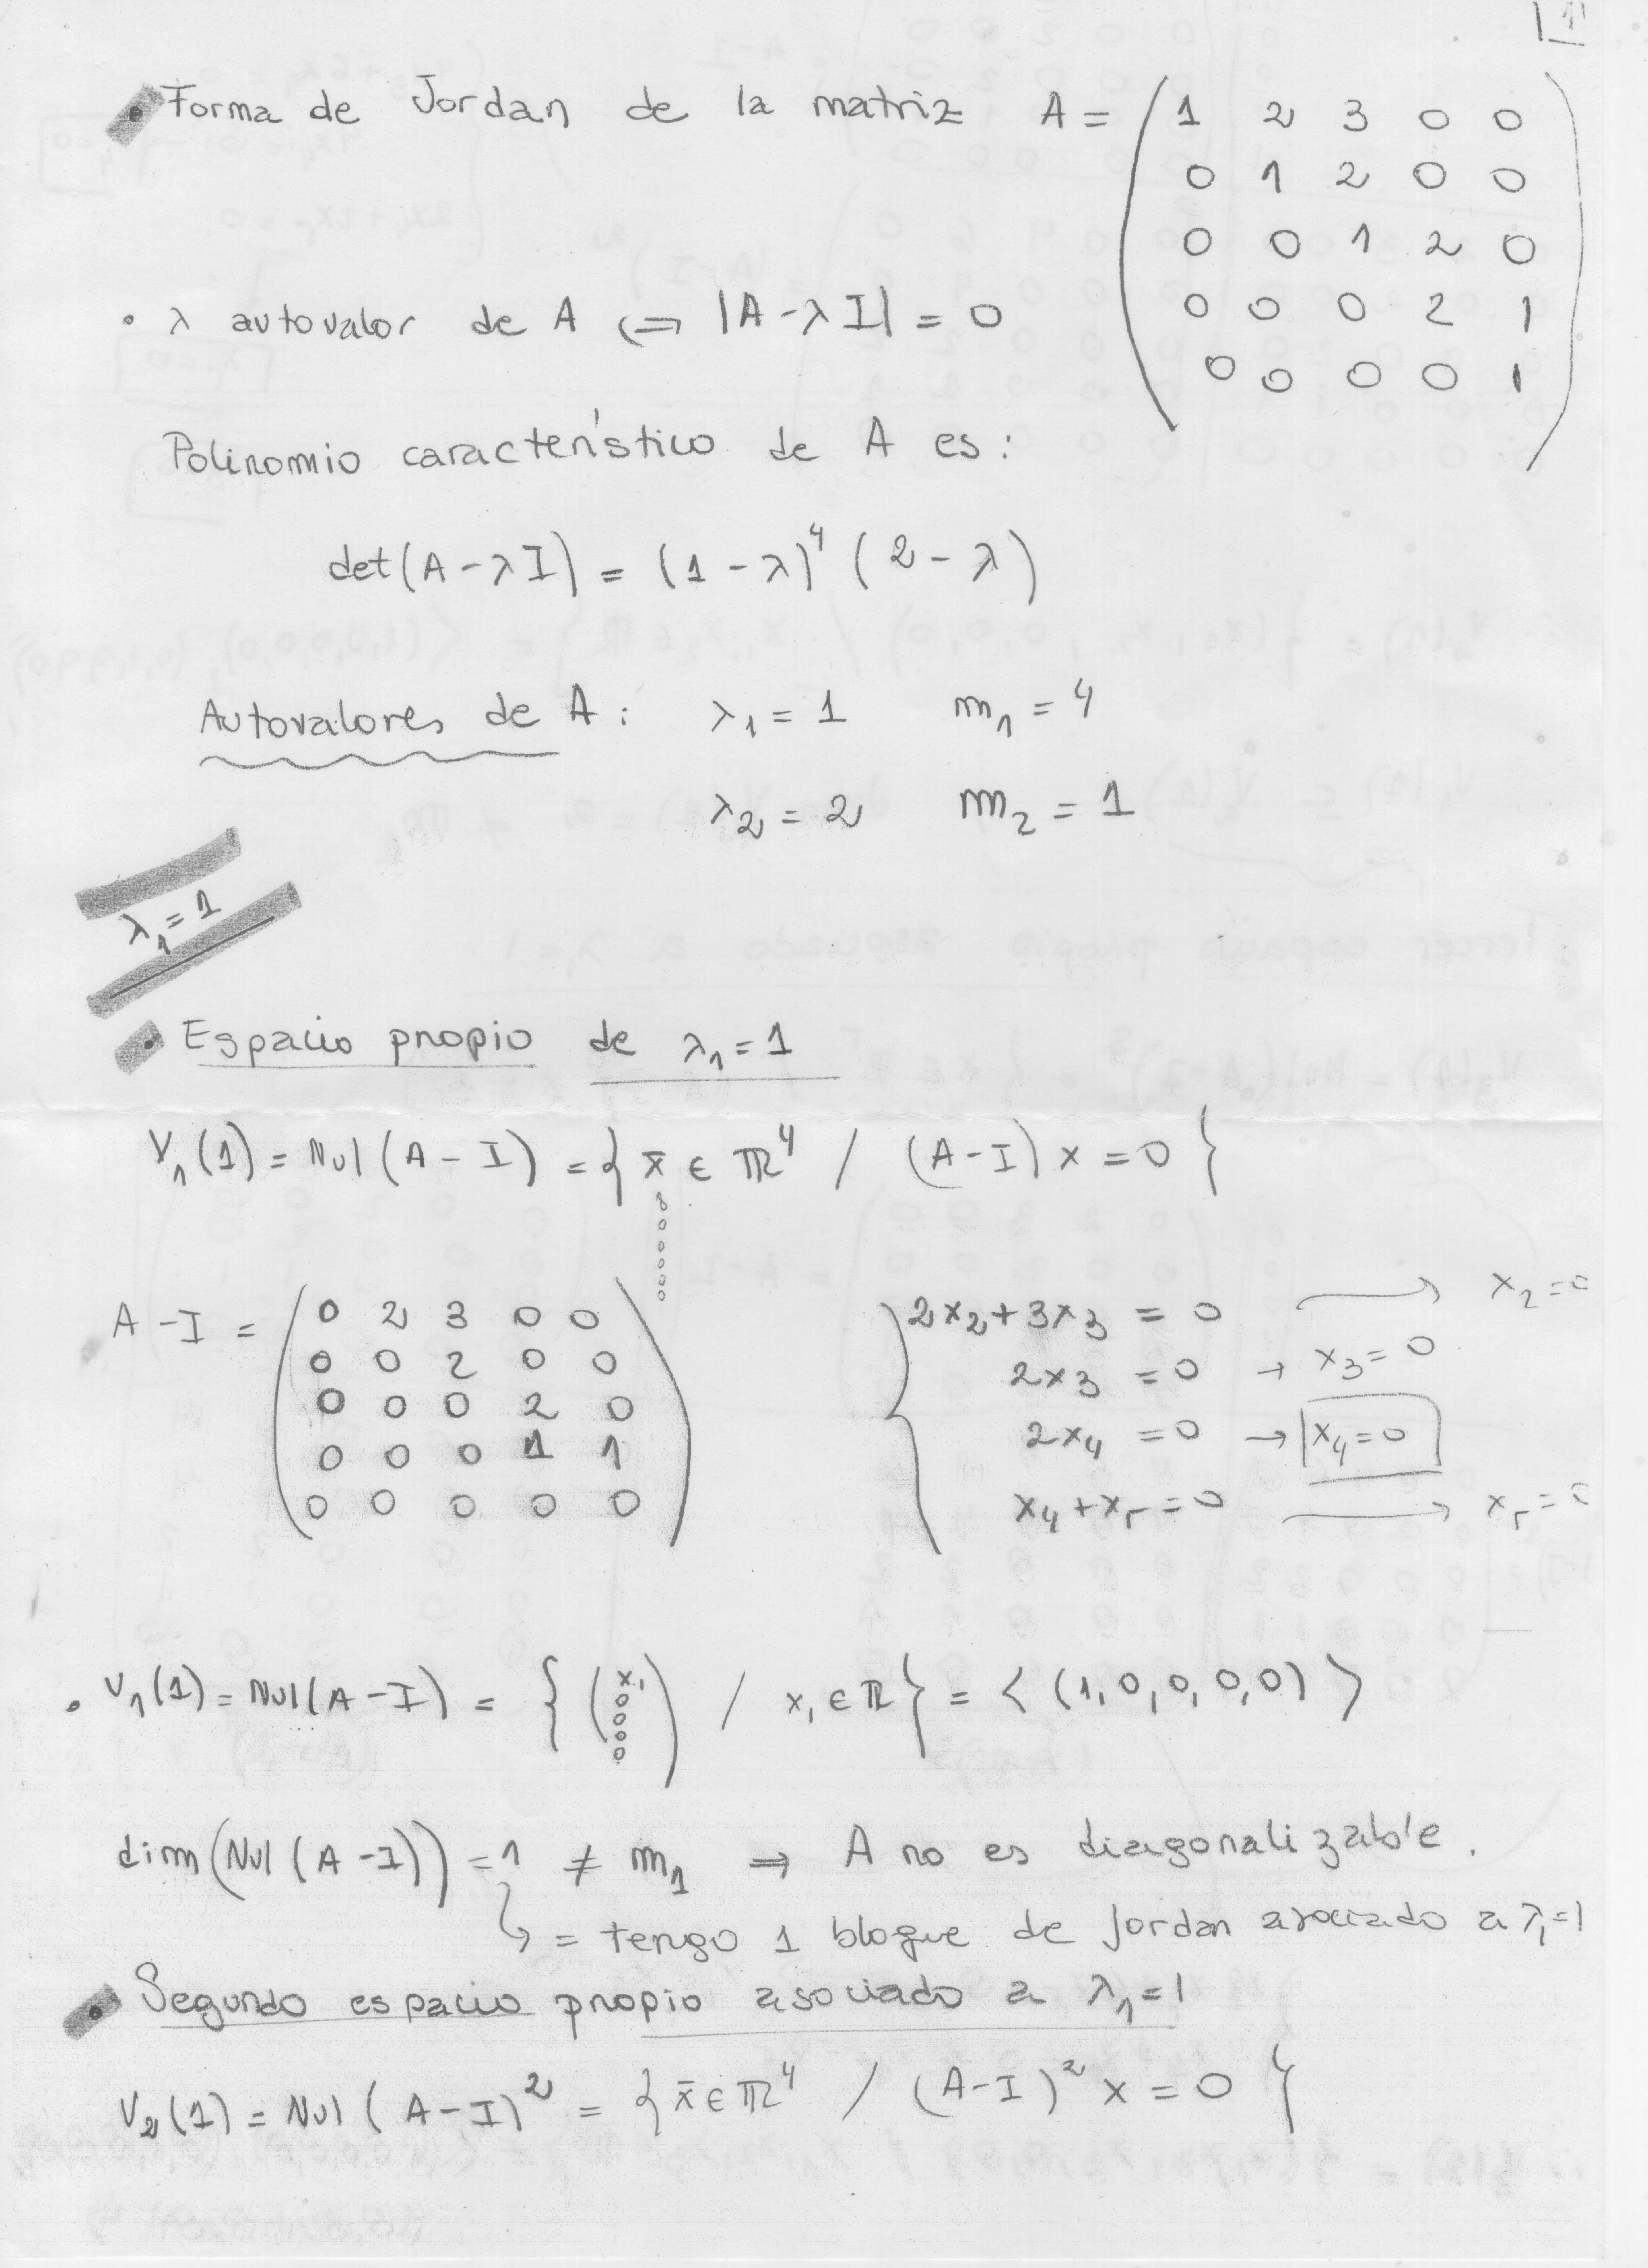 1
• Forma de Jordan de la matriz A = ( 1 2 3 0 0
0 1 2 0 0
0 0 1 2 0
0 0 0 2 1
0 0 0 0 1 )
• λ autovalor de A ⇔ |A - λI| = 0
Polinomio característico de A es:
det(A - λI) = (1 - λ)⁴ (2 - λ)
Autovalores de A: λ₁ = 1 m₁ = 4
λ₂ = 2 m₂ = 1
λ₁ = 1
• Espacio propio de λ₁ = 1
V₁(1) = Nul(A - I) = { x̄ ∈ ℝ⁴ / (A - I) x = 0 }
A - I = ( 0 2 3 0 0
0 0 2 0 0
0 0 0 2 0
0 0 0 1 1
0 0 0 0 0 )
{ 2x₂ + 3x₃ = 0 → x₂ = 0
2x₃ = 0 → x₃ = 0
2x₄ = 0 → x₄ = 0
x₄ + x₅ = 0 → x₅ = 0
• V₁(1) = Nul(A - I) = { ( x₁ 0 0 0 0 ) / x₁ ∈ ℝ } = < (1,0,0,0,0) >
dim(Nul(A - I)) = 1 ≠ m₁ ⇒ A no es diagonalizable.
↳ = tengo 1 bloque de Jordan asociado a λ₁=1
• Segundo espacio propio asociado a λ₁=1
V₂(1) = Nul(A - I)² = { x̄ ∈ ℝ⁴ / (A - I)² x = 0 }